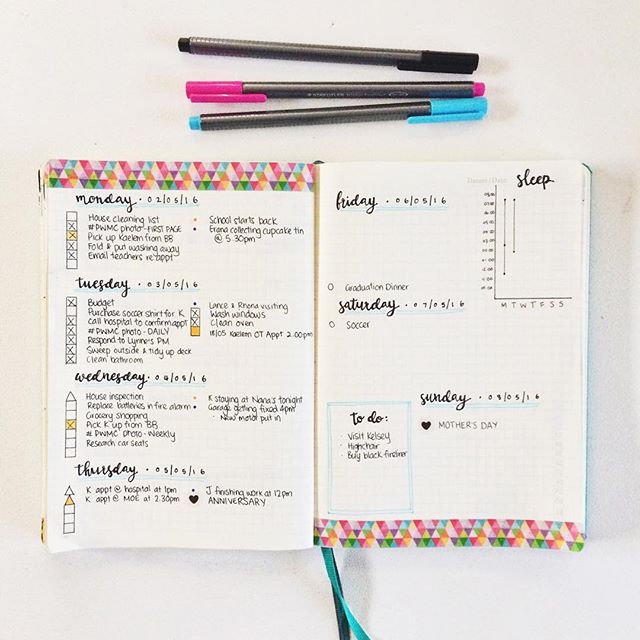 monday · 02/05/16
House cleaning list
#DWMC photo - FIRST PAGE
Pick up Kaelem from BB
Fold & put washing away
Email teachers re: appt
School starts back
Erana collecting cupcake tin
@ 5.30pm
tuesday · 03/05/16
Budget
Purchase soccer shirt for K
Call hospital to confirm appt
#DWMC photo - DAILY
Respond to Lynne's PM
Sweep outside & tidy up deck
Clean bathroom
Lance & Rhena visiting
Wash windows
Clean oven
18/05 Kaelem OT Appt 2.00pm
wednesday · 04/05/16
House inspection
Replace batteries in fire alarm
Grocery shopping
Pick K up from BB
#DWMC photo - Weekly
Research car seats
K staying at Nana's tonight
Garage getting fixed 4pm
- New motor put in
thursday · 05/05/16
K appt @ hospital at 1pm
K appt @ MOE at 2.30pm
J finishing work at 12pm
ANNIVERSARY
friday · 06/05/16
Graduation Dinner
saturday · 07/05/16
Soccer
to do:
· Visit Kelsey
· Highchair
· Buy black fineliner
sleep
M T W T F S S
sunday · 08/05/16
MOTHER'S DAY